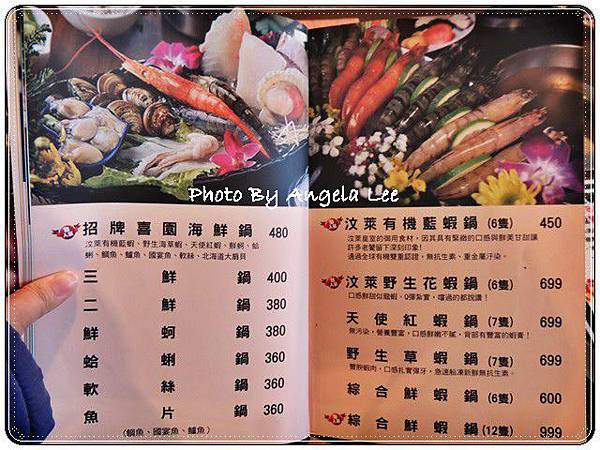 Photo By Angela Lee
招牌喜園海鮮鍋 480
汶萊有機藍蝦、野生海草蝦、天使紅蝦、鮮蚵、蛤
蜊、鯛魚、鱸魚、國宴魚、軟絲、北海道大扇貝
三鮮鍋 400
二鮮鍋 380
鮮蚵鍋 360
蛤蜊鍋 360
軟絲鍋 360
魚片鍋 360
(鯛魚、國宴魚、鱸魚)
汶萊有機藍蝦鍋 (6隻) 450
汶萊皇室的御用食材，因其具有緊緻的口感與鮮美甘甜讓
許多老饕留下深刻印象!
通過全球有機雙重認證，無抗生素、重金屬汙染。
汶萊野生花蝦鍋 (6隻) 699
口感鮮甜似龍蝦、Q彈紮實，嚐過的都說讚!
天使紅蝦鍋 (7隻) 699
無污染，營養豐富，口感鮮嫩不膩，背部有豐富的蝦膏!
野生草蝦鍋 (7隻) 699
豐腴蝦肉，口感扎實彈牙，急速船凍新鮮無抗生素。
綜合鮮蝦鍋 (6隻) 600
綜合鮮蝦鍋 (12隻) 999